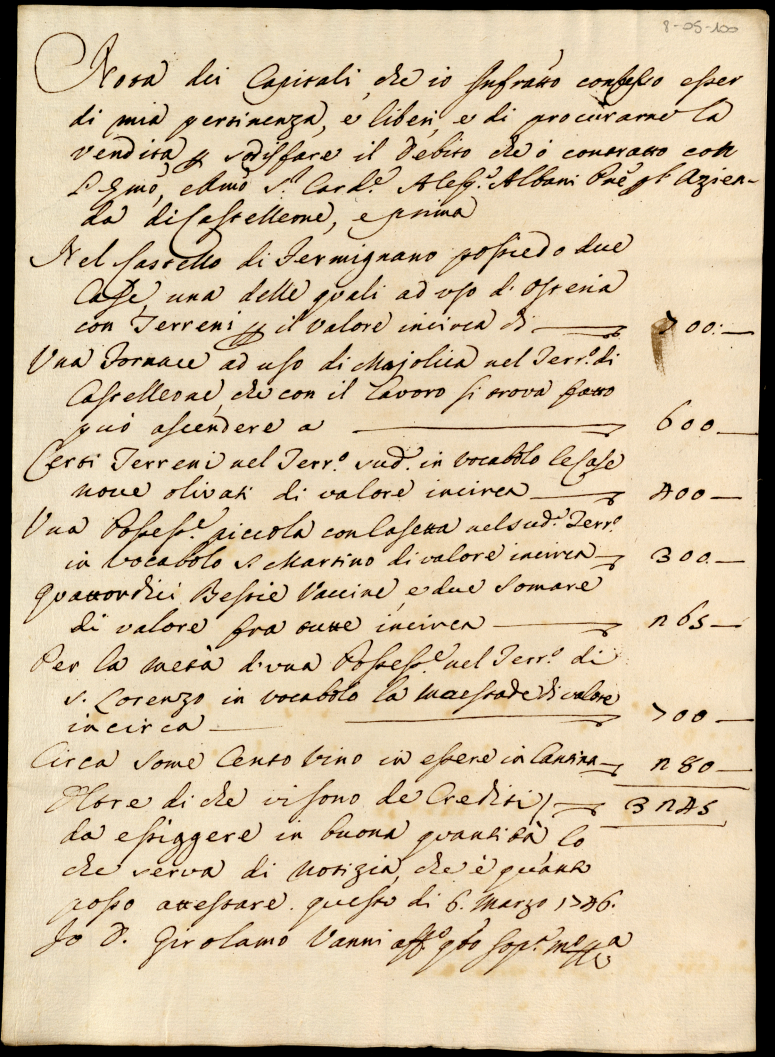 8-05-100
Nota dei Capitali, che io Infratto confesso esser
di mia pertinenza, e liberi, e di procurarne la
vendita p sodisfare il Debito che ò contratto con
l'Emo, e Rmo S.r Card.e Aless.o Albani Pne pl Azien-
da di Castelleone, e prima
Nel Castello di Fermignano possiedo due
Case, una delle quali ad uso d'Osteria
con Terreni p il valore incirca di 700:
Una Fornace ad uso di Majolica nel Terr.o di
Castelleone, che con il Lavoro si trova fatto
può ascendere a 600
Certi Terreni nel Terr.o sud.o in vocabolo le Case
nove olivati di valore incirca 400
Una Possess.e piccola con Casetta nel sud.o Terr.o
in vocabolo S. Martino di valore incirca 300
Quattordici Bestie Vaccine, e due Somare
di valore fra tutte incirca 165
Per la metà d'una Possess.e nel Terr.o di
S. Lorenzo in vocabolo la Maestade di valore
incirca 700
Circa Some Cento Vino in essere in Cantina 180
Oltre di che vi sono de Crediti 3145
da essiggere in buona quantità, lo
che serva di notizia, che è quanto
posso attestare. questo di 6. Marzo 1746.
Io D. Girolamo Vanni aff.o q.to sop.a m.o pp.a